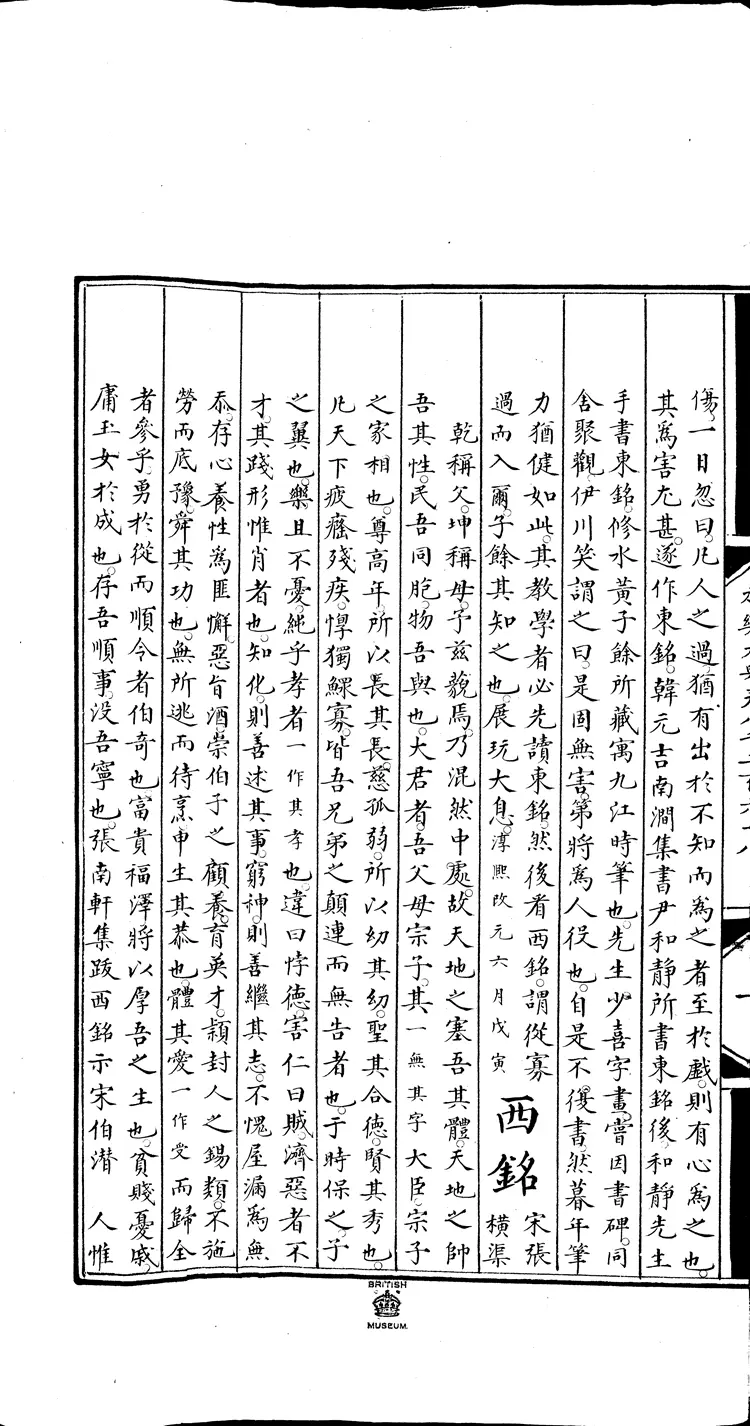 傷。一日忽曰。凡人之過。猶有出於不知而為之者。至於戲。則有心為之也。
其為害尤甚。遂作東銘。韓元吉南澗集書尹和靜所書東銘後。和靜先生
手書東銘。修水黃子餘所藏。寓九江時筆也。先生少喜字畫。嘗因書碑。同
舍聚觀。伊川笑謂之曰。是固無害。第將為人役也。自是不復書。然暮年筆
力猶健如此。其教學者必先讀東銘。然後看西銘。謂從寡
過而入爾。子餘其知之也。展玩大息。淳熙改元六月戊寅
西銘
宋張
橫渠
乾稱父。坤稱母。予茲藐焉。乃混然中處。故天地之塞吾其體。天地之帥
吾其性。民吾同胞。物吾與也。大君者。吾父母宗子。其一無其字大臣。宗子
之家相也。尊高年。所以長其長。慈孤弱。所以幼其幼。聖其合德。賢其秀也。
凡天下疲癃殘疾。惸獨鰥寡。皆吾兄弟之顛連而無告者也。于時保之。子
之翼也。樂且不憂。純乎孝者一作其孝也。違曰悖德。害仁曰賊。濟惡者不
才。其踐形惟肖者也。知化則善述其事。窮神則善繼其志。不愧屋漏為無
忝。存心養性為匪懈。惡旨酒崇伯子之顧養。育英才。潁封人之錫類。不施
勞而底豫。舜其功也。無所逃而待烹。申生其恭也。體其愛一作受而歸全
者參乎。勇於從而順令者伯奇也。富貴福澤將以厚吾之生也。貧賤憂戚
庸玉女於成也。存吾順事。沒吾寧也。張南軒集跋西銘示宋伯潛 人惟
BRITISH
MUSEUM